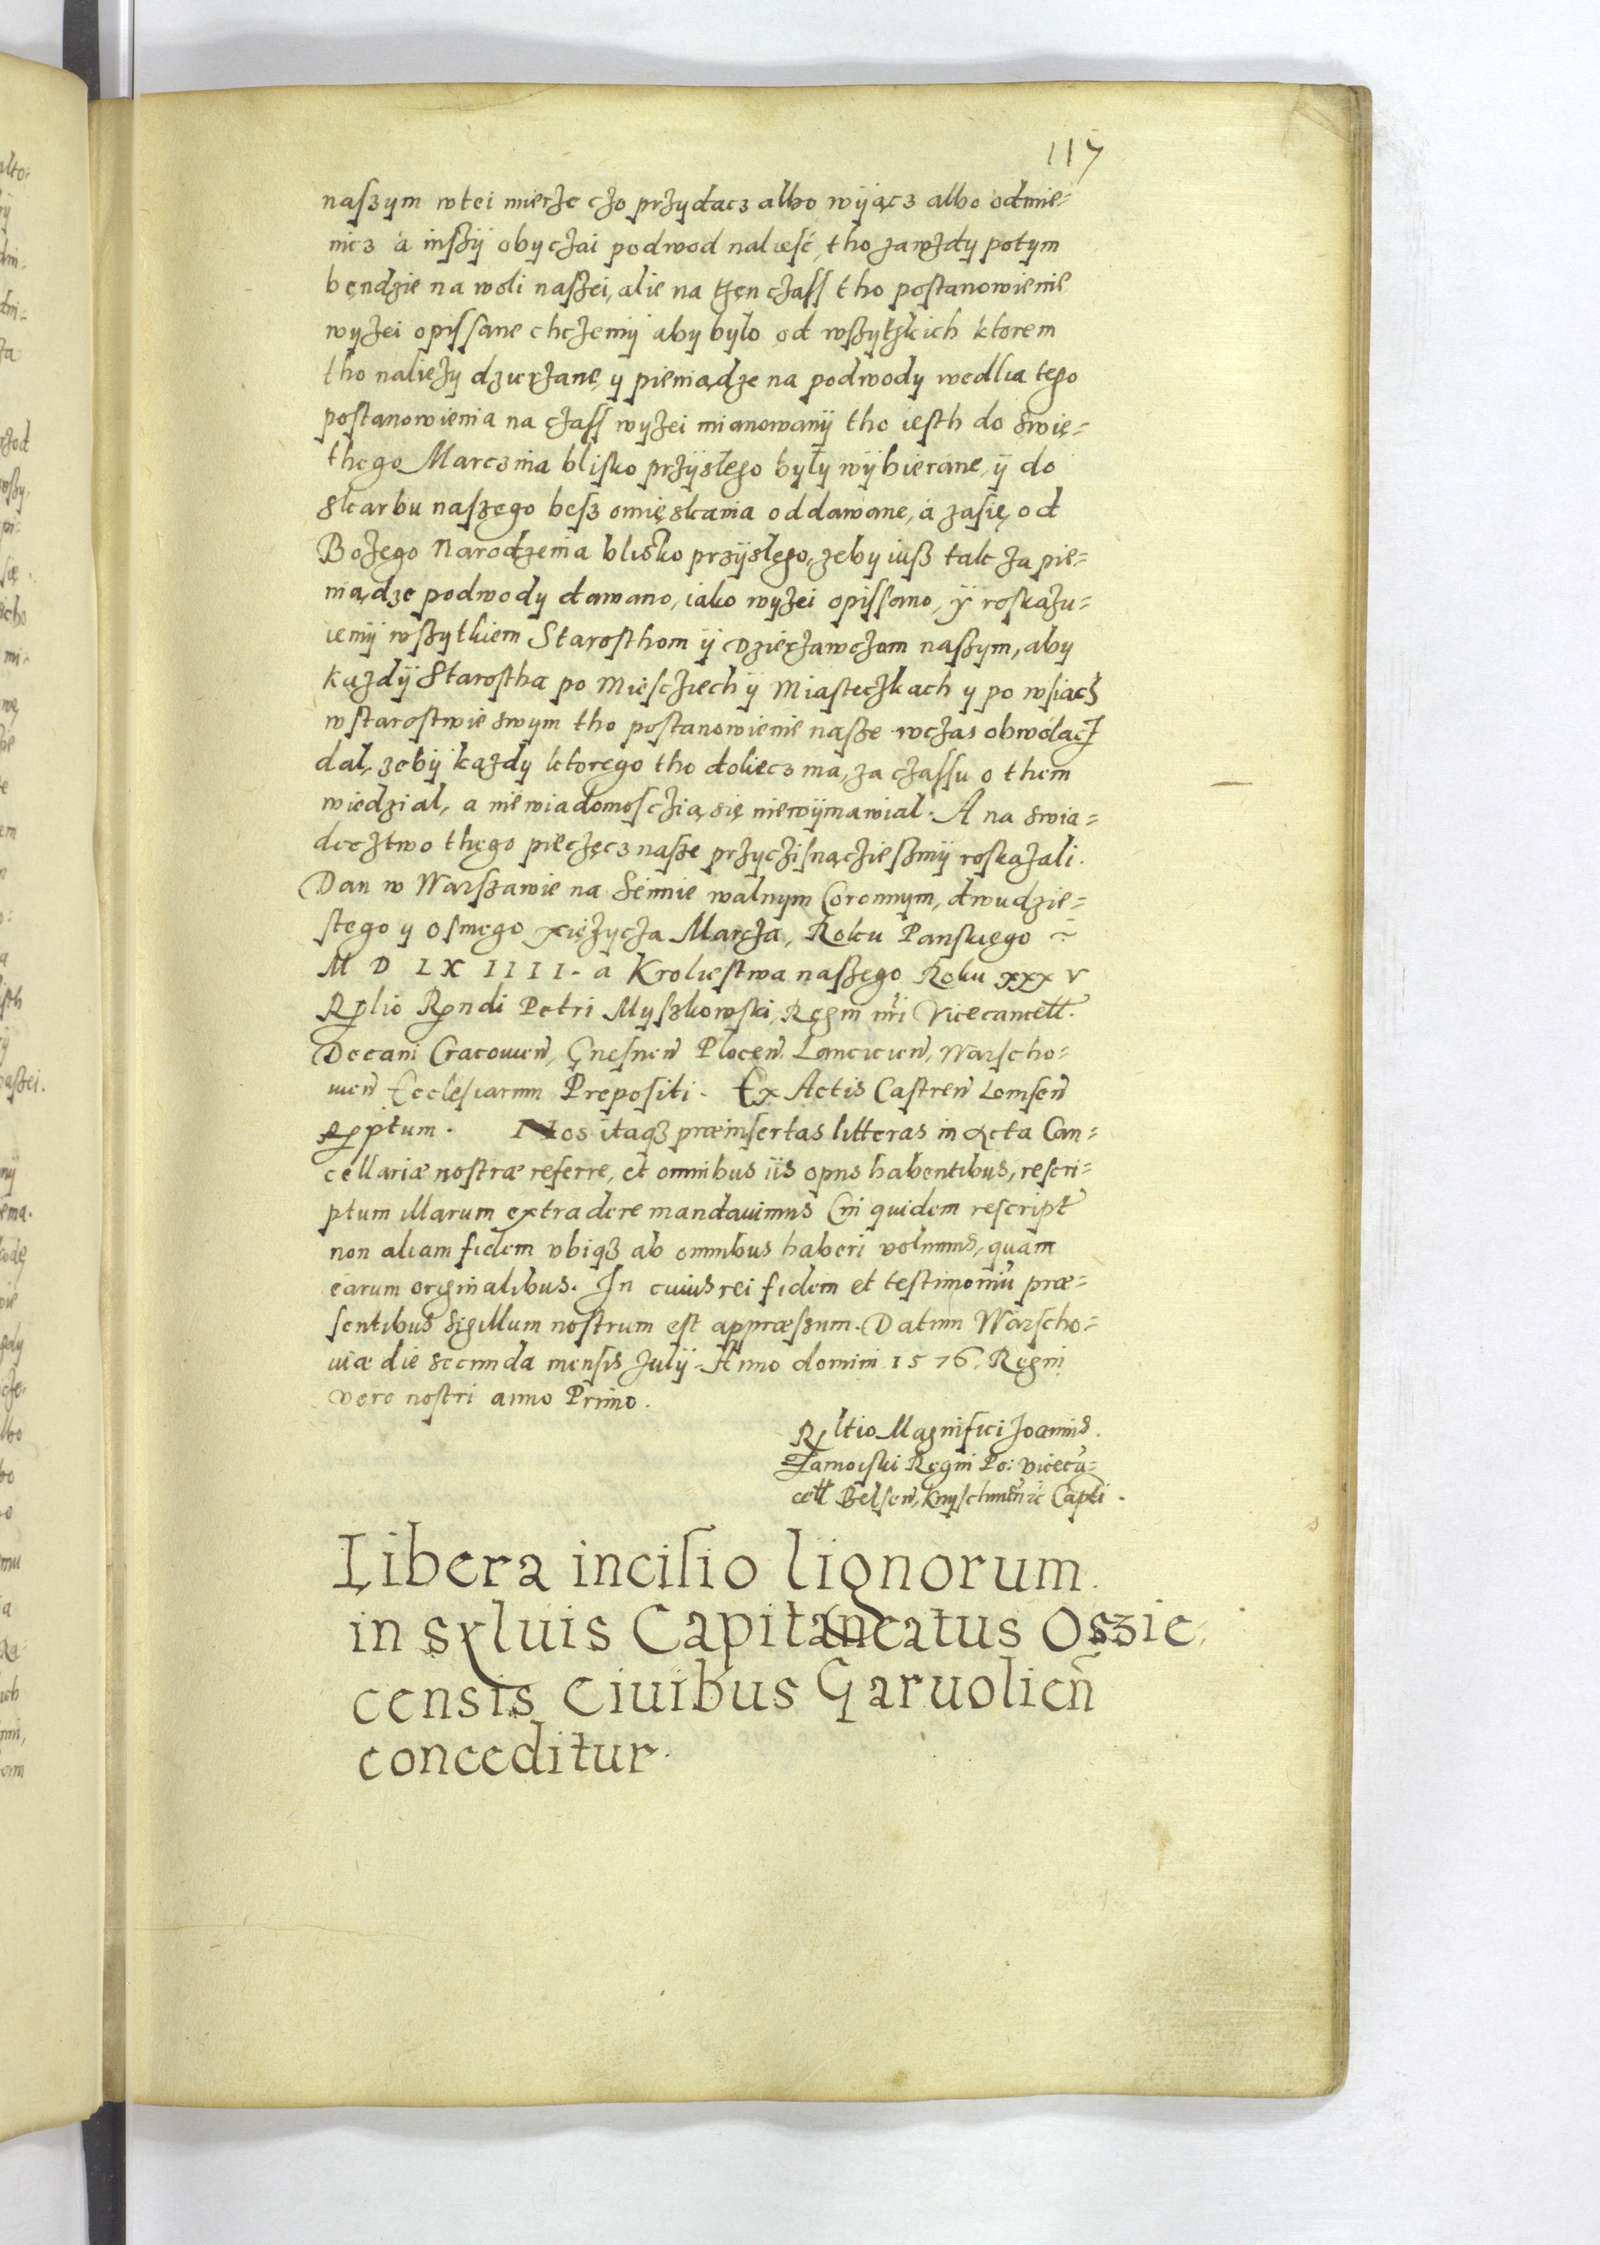 117
naszym wtei mierze czo przydacz albo wyjącz albo odmie=
nicz á inszÿ obyczai podwod naleść, tho zawżdy potym
bęndzie na woli naszei, alie na tzęn czass tho postanowienie
wyżei opissane chczemÿ aby bylo od wszytzkich ktorem
tho należy dzierżane, y pieniądze na podwody wedlia tego
postanowienia na czass wyżei mianowanÿ tho iesth do swię=
thego Marcznia blisko przÿslego byly wÿbierane, ÿ do
skarbu naszego besz omięskania oddawane, á zasię od
Bożego Narodzenia blisko przÿslego, żeby iusz tak za pie=
niądze podwody dawano, iako wyżei opissano, ÿ roskazu=
iemÿ wszytkiem Starosthom ÿ Dzierżawczom naszym, aby
każdÿ Starostha po Miesciech ÿ Miasteczkach y po wsiach
w starostwie swym tho postanowienie nasze wczas obwolacz
dal, żebÿ każdy ktorego tho dolięcz ma, za czassu o them
wiedzial, a niewiadomosczią się niewÿmawial. A na swia=
decztwo thęgo pieczęcz nasze przyczisnącziesmÿ roskazali.
Dan w Warszawie na Seimie walnym Coronnym, dwudzie=
stego y osmego xiężycza Marcza, Roku Panskięgo
M D LX IIII. a Krolestwa naszego Roku xxxv
Rplio Rndi Petri Myszkowski, Regni nri Vicecancell.
Decani Cracouien, Gnesnen Plocen Lancicien, Warscho=
uien Ecclesiarum Prepositi. Ex Actis Castren Lomsen
Rptum. Nos itaqз præinsertas litteras in acta Can=
cellariæ nostræ referre, et omnibus iis opus habentibus, rescri=
ptum illarum extradere mandauimus Cui quidem rescript
non aliam fidem vbiqз ab omnibus haberi volumus, quam
earum originalibus. In cuius rei fidem et testimoniu præ=
sentibus Sigillum nostrum est appræssum. Datum Warscho=
uiæ die secunda mensis Julÿ. Anno domini 1576. Regni
vero nostri anno Primo.
Rltio Magnifici Joannis
Zamoiski Regni Po: vicecā=
cell Belsen, Knyschinen zc Capti.
Libera incisio lignorum
in syluis Capitaneatus Oszie
censis Ciuibus Garuolien
conceditur.